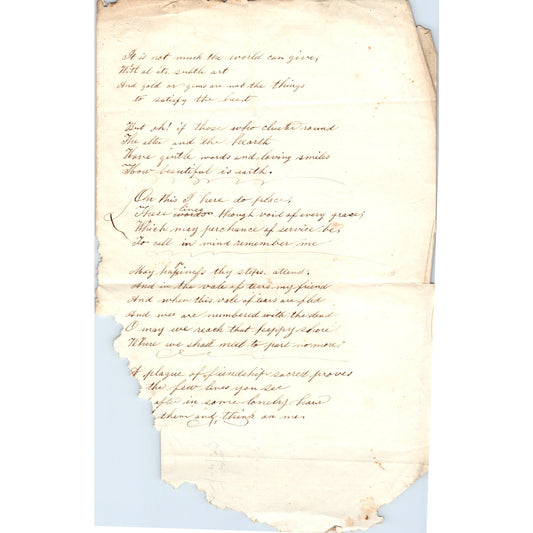 It is not much the world can give,
With al its subtle art
And gold or gems are not the things
to satisfy the heart
But oh! if those who cluster round
The alter and the hearth
Have gentle words and loving smiles
How beautiful is earth.
On this I here do place,
lines
These words though void of every grace;
Which may perchance of service be,
To call in mind remember me
May happiness thy steps attend,
And in the vale of tears my friend
And when this vale of tears are fled
And we are numbered with the dead
O may we reach that happy shore
Where we shall meet to part no more.
A plague of friendship sacred proves
the few lines you see
ofte in some lonely hour
them and think on me.